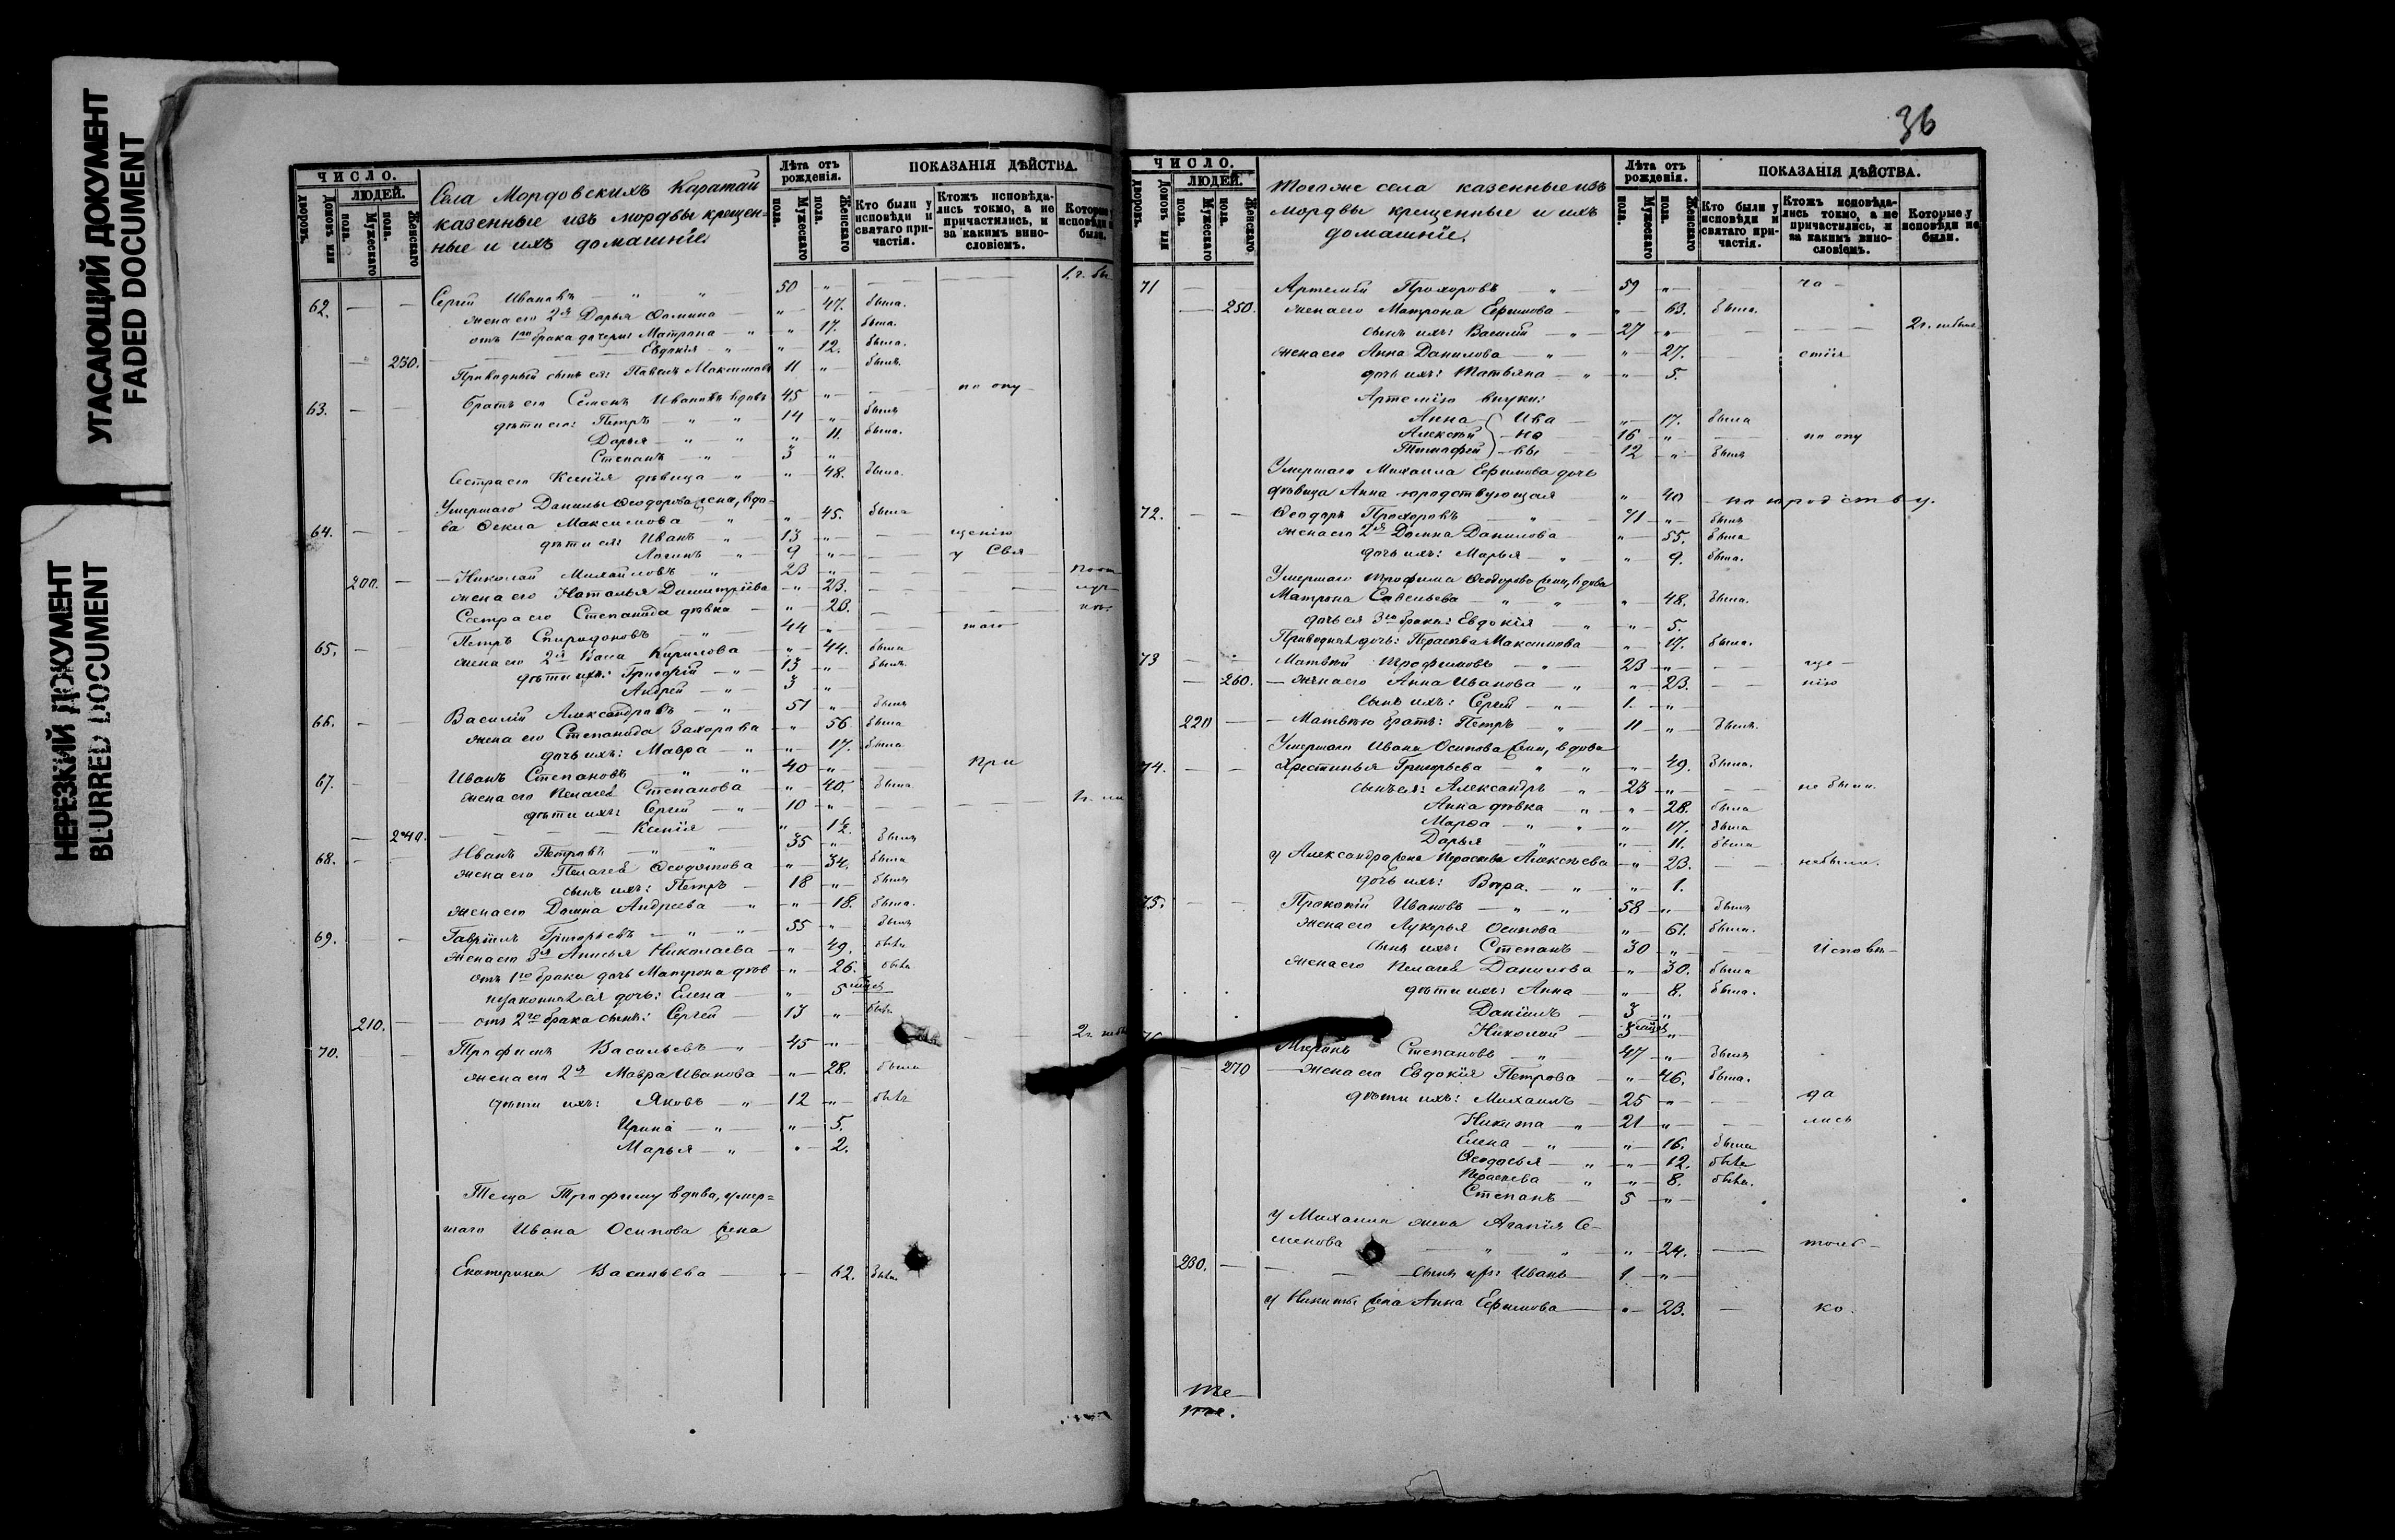 УГАСАЮЩИЙ ДОКУМЕНТ
FADED DOCUMENT
НЕРЕЗКИЙ ДОКУМЕНТ
BLURRED DOCUMENT
ЧИСЛО.
ЛЮДЕЙ.
Домовъ или дворовъ.
Мужескаго пола.
Женскаго пола.
Села Мордовскихъ Каратай
казенные изъ мордвы крещен=
ные и ихъ домашніе
Лѣта отъ рожденія.
Мужескаго пола.
Женскаго пола.
ПОКАЗАНІЯ ДѢЙСТВА.
Кто были у исповѣди и святаго причастія.
Ктожъ исповѣдались токмо, а не причастились, и за какимъ винословіемъ.
62. — — Сергей Ивановъ — " — " 50 "
жена его 2я Дарья Фомина — " 47. была.
отъ 1го брака дочери: Матрона — " " 17. была.
Евдокія — " " 12. была.
230. Приводный сынъ ея: Павелъ Максимовъ 11 " былъ.
63. — — братъ его Семенъ Ивановъ вдовъ 45 " — по опу
дѣти его: Петръ — " — " 14 " былъ
Дарья — " — " " 11. была.
Степанъ — " 3 "
Сестра его Ксенія дѣвица — " " 48. была.
Умершаго Данилы Ѳеодорова жена, вдо-
64. — — ва Ѳекла Максимова — " " 45. была
дѣти ея: Иванъ — " 13 " — щенію
Логинъ — " 9 " — у Свя
200. — Николай Михайловъ — " 23 "
жена его Наталья Димитріева — " 23.
Сестра его Степанида дѣвка — " 23.
65. — Петръ Спиридоновъ — " 44 " — таго
жена его 2я Васа Кирилова — " 44. была
дѣти ихъ: Григорій — " 13 " былъ
Андрей — " 3 "
66. — — Василій Александровъ — " 51 " былъ
жена его Степанида Захарова — " 56. была
дочь ихъ: Мавра — " " 17. была
67. — Иванъ Степановъ — " — " 40 " — При
жена его Пелагея Степанова — " 40. была
дѣти ихъ: Сергей — " 10 "
240. Ксенія — " 1½.
68. — Иванъ Петровъ — " — " 35 " былъ
жена его Пелагея Ѳеодотова — " 34. была
сынъ ихъ: Петръ — 18 " былъ
жена его Домна Андреева — " " 18. была.
69. — Гавріилъ Григорьевъ — " — " 55 " былъ
жена его 3я Анисья Николаева — " 49. была
отъ 1го брака дочь Матрона дѣв " 26. была
незаконная ея дочь: Елена — " 5
210. — отъ 2го брака сынъ: Сергей — 13 "
70. — Трофимъ Васильевъ — " 45 "
жена его 2я Мавра Иванова — " 28. была
дѣти ихъ: Яковъ — " 12 "
Ирина — " " 5.
Марья — " " 2.
Теща Трофиму вдова, умер=
шаго Ивана Осипова жена
Екатерина Васильева — 62. была
36
ЧИСЛО.
ЛЮДЕЙ.
Домовъ или дворовъ.
Мужескаго пола.
Женскаго пола.
Того же села казенные изъ
мордвы крещенные и ихъ
домашніе.
Лѣта отъ рожденія.
Мужескаго пола.
Женскаго пола.
ПОКАЗАНІЯ ДѢЙСТВА.
Кто были у исповѣди и святаго причастія.
Ктожъ исповѣдались токмо, а не причастились, и за какимъ винословіемъ.
Которые у исповѣди не были.
71 — Артемій Прохоровъ — " 59 "
250. жена его Матрона Ефимова — " 63. была.
сынъ ихъ: Василій — " 27 "
жена его Анна Данилова — " " 27. — стія
дочь ихъ: Татьяна — " " 5.
Артемію внуки:
Анна — Ива " 17. была
Алексѣй — но 16 " — по опу
Тимофей — вы 12 " былъ
Умершаго Михаила Ефимова дочь
дѣвица Анна юродствующая " 40 по юродству.
72. — — Ѳеодоръ Прохоровъ — " 71 " былъ
жена его 2я Домна Данилова " 55. была
дочь ихъ: Марья — " " 9. была.
Умершаго Трофима Ѳеодорова жена, вдова
Матрона Савельева — " — " " 48. была.
дочь ея 3го брака: Евдокія — " " 5.
Приводная дочь: Пераскева Максимова " 17. была.
73 — — Матвѣй Трофимовъ — " 23 " — ще —
260. — жена его Анна Иванова — " " 23. — нію
сынъ ихъ: Сергей — " 1. "
220 — Матвѣю братъ: Петръ — " 11 " былъ.
Умершаго Ивана Осипова жена, вдова
74. — — Христинья Григорьева — " — " " 49. была.
сынъ ея: Александръ — " 23 " — не были.
Анна дѣвка — " " 28. была
Марѳа — " — " " 17. была
Дарья " " 11. была
у Александра жена Пераскева Алексѣева " 23. — небыли.
дочь ихъ: Вѣра. — " " 1.
75. — — Прокопій Ивановъ — " — " 58 " былъ
жена его Лукерья Осипова " 61. была.
сынъ ихъ: Степанъ — 30 " — Исповѣ—
жена его Пелагея Данилова — " 30. была
дѣти ихъ: Анна — " 8. была.
Даніилъ — 3 "
Николай — 3
Миронъ Степановъ — " 47 " былъ
270 — жена его Евдокія Петрова — " 46. была.
дѣти ихъ: Михаилъ — 25 " — да
Никита — " 21 " — лись
Елена — " " 16. была
Ѳеодосья — " " 12.
Пераскева — " " 8.
Степанъ — 5 "
У Михаила жена Агапія Се-
менова — " " " 24. — толь—
230. — сынъ ихъ: Иванъ — 1 "
У Никиты жена Анна Ефимова — " 23. — ко.